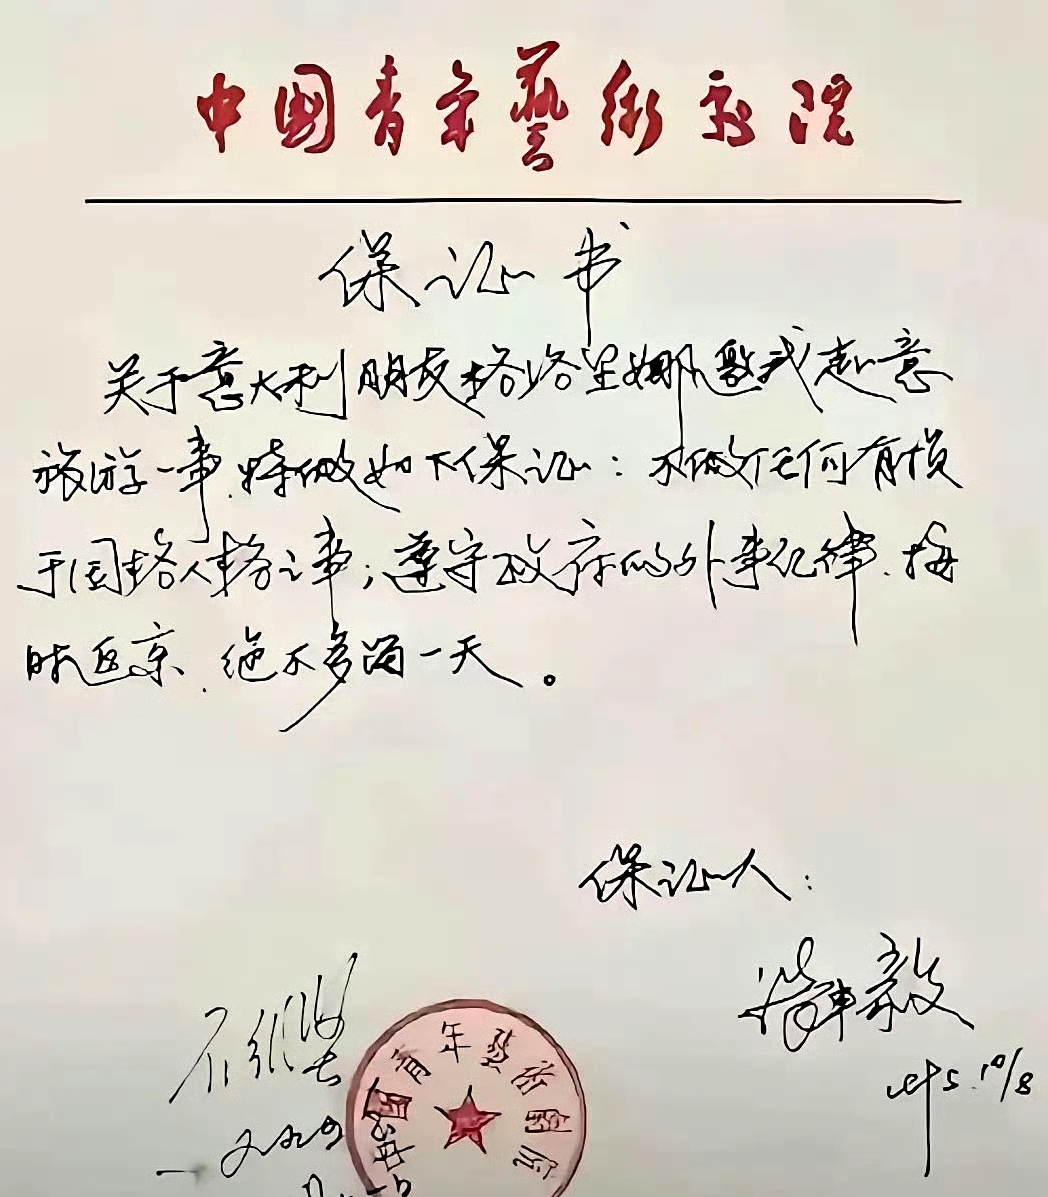 中國青年藝術劇院
保证书
关于意大利朋友格洛里娜邀我赴意
旅游一事，特做如下保证：不做任何有损
于国格人格之事；遵守政府的外事纪律，按
时返京，绝不多留一天。
保证人：
10/8
中國青年藝術劇院